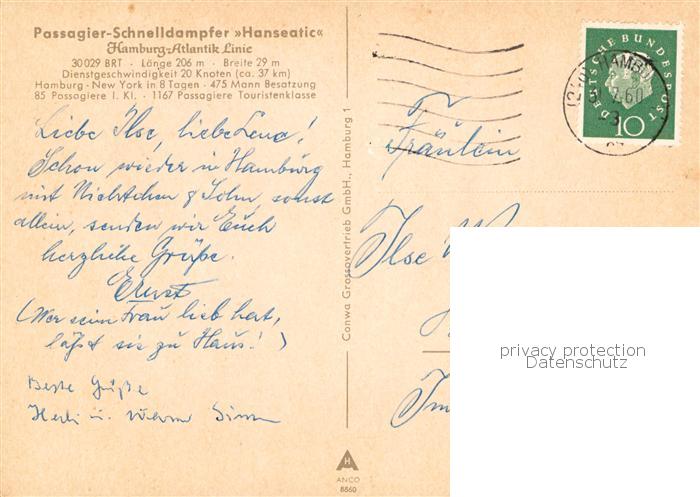 Passagier-Schnelldampfer »Hanseatic«
Hamburg-Atlantik Linie
30 029 BRT · Länge 206 m · Breite 29 m
Dienstgeschwindigkeit 20 Knoten (ca. 37 km)
Hamburg - New York in 8 Tagen · 475 Mann Besatzung
85 Passagiere I. Kl. · 1167 Passagiere Touristenklasse
Liebe Ilse, liebe Lena!
Schon wieder in Hamburg
mit Nichtchen & Sohn, sonst
allein, senden wir Euch
herzliche Grüße.
Ernst
(Wer sein Frau lieb hat,
läßt sie zu Haus!)
Beste Grüße
u.
Conwa Grossovertrieb GmbH., Hamburg 1
ANCO
8860
DEUTSCHE BUNDESPOST
10
HAMB
Fräulein
Ilse
privacy protection
Datenschutz